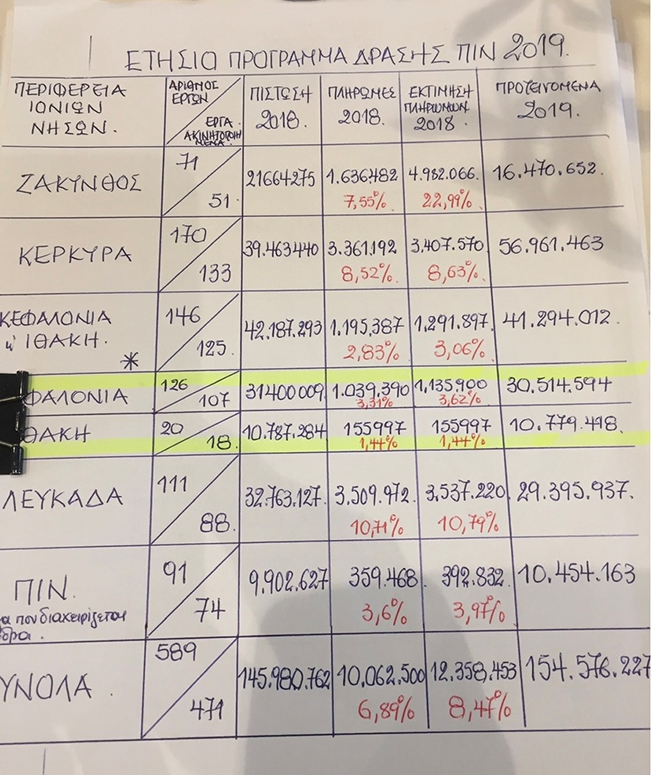 ΕΤΗΣΙΟ ΠΡΟΓΡΑΜΜΑ ΔΡΑΣΗΣ ΠΙΝ 2019.
ΠΕΡΙΦΕΡΕΙΑ ΙΟΝΙΩΝ ΝΗΣΩΝ. ΑΡΙΘΜΟΣ ΕΡΓΩΝ ΕΡΓΑ ΑΚΙΝΗΤΟΠΟΙΗΜΕΝΑ. ΠΙΣΤΩΣΗ 2018. ΠΛΗΡΩΜΕΣ 2018. ΕΚΤΙΜΗΣΗ ΠΛΗΡΩΜΩΝ 2018. ΠΡΟΤΕΙΝΟΜΕΝΑ 2019.
ΖΑΚΥΝΘΟΣ 71 51. 21664275 1.636.482 4.982.066. 16.470.652.
7,55% 22,99%
ΚΕΡΚΥΡΑ 170 133 39.463440 3.361.192 3.407.570 56.961.463
8,52% 8,63%
ΚΕΦΑΛΟΝΙΑ 146 125. 42.187.293 1.195.387 1.291.897. 41.294.012.
ΙΘΑΚΗ. * 2,83% 3,06%
ΦΑΛΟΝΙΑ 126 107 31400009 1.039.390 1,135.900 30.514.594
3,31% 3,62%
ΘΑΚΗ 20 18. 10.787.284 155997 155997 10.779.418.
1,44% 1,44%
ΛΕΥΚΑΔΑ 111 88. 32.763.127. 3.509.972 3.537.220. 29.395.937.
10,71% 10,79%
ΠΙΝ. 91 74 9.902.627 359.468 392.832 10.454.163
α που διαχειρίζεται 3,6% 3,97%
δρα.
ΥΝΟΛΑ. 589 471 145.980.762 10.062.500 12.358.453 154.576.227
6,89% 8,47%